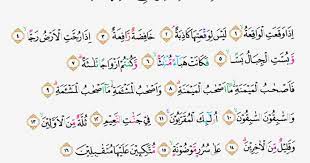 إِذَا وَقَعَتِ الْوَاقِعَةُ ١ لَيْسَ لِوَقْعَتِهَا كَاذِبَةٌ ٢ خَافِضَةٌ رَافِعَةٌ ٣ إِذَا رُجَّتِ الْأَرْضُ رَجًّا ٤
وَبُسَّتِ الْجِبَالُ بَسًّا ٥ فَكَانَتْ هَبَاءً مُنْبَثًّا ٦ وَكُنْتُمْ أَزْوَاجًا ثَلَاثَةً ٧
فَأَصْحَابُ الْمَيْمَنَةِ مَا أَصْحَابُ الْمَيْمَنَةِ ٨ وَأَصْحَابُ الْمَشْأَمَةِ مَا أَصْحَابُ الْمَشْأَمَةِ ٩
وَالسَّابِقُونَ السَّابِقُونَ ١٠ أُولَئِكَ الْمُقَرَّبُونَ ١١ فِي جَنَّاتِ النَّعِيمِ ١٢ ثُلَّةٌ مِنَ الْأَوَّلِينَ ١٣
وَقَلِيلٌ مِنَ الْآخِرِينَ ١٤ عَلَى سُرُرٍ مَوْضُونَةٍ ١٥ مُتَّكِئِينَ عَلَيْهَا مُتَقَابِلِينَ ١٦